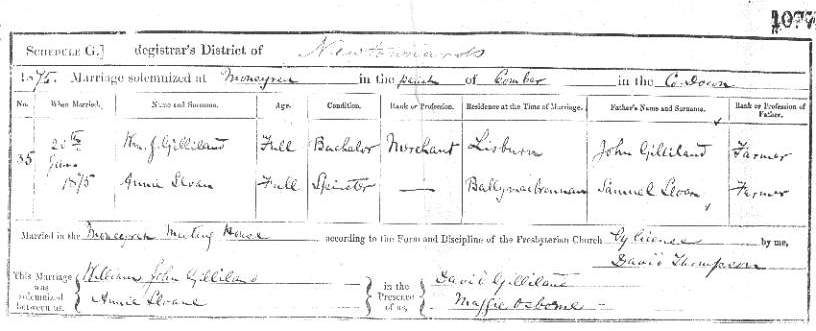 1077
SCHEDULE G.] Registrar's District of Newtownards
1875. Marriage solemnized at Moneyrea in the parish of Comber in the Co. Down
No. When Married. Name and Surname. Age. Condition. Rank or Profession. Residence at the Time of Marriage. Father's Name and Surname. Rank or Profession of Father.
35 20th June 1875 Wm. J. Gilliland Full Bachelor Merchant Lisburn John Gilliland Farmer
Annie Sloan Full Spinster — Ballymacbrennan Samuel Sloan Farmer
Married in the Moneyrea Meeting House according to the Form and Discipline of the Presbyterian Church by license by me,
David Thompson
This Marriage was solemnized between us, William John Gilliland in the Presence of us, David Gilliland
Annie Sloane Maggie Osborne